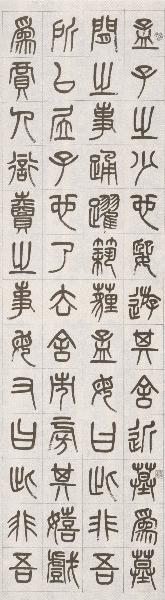 孟子之少也嬉遊其舍近墓爲墓
間之事踊躍築薶孟母曰此非吾
所以居子也乃去舍市旁其嬉戲
爲賈人衒賣之事母又曰此非吾